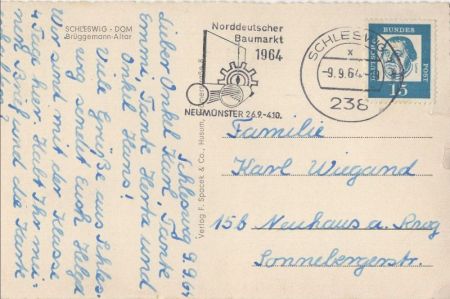 SCHLESWIG - DOM
Brüggemann-Altar
Schleswig 9.9.64
Lieber Onkel Karl, Tante
Emmi, Tante Herta und
Onkel Hans!
Viele Grüße aus Schles-
wig sendet Euch Helga
Wir sind mit der Klasse
4 Tage hier. Habt Ihr mei-
nen Brief und die Karte
Norddeutscher
Baumarkt
1964
NEUMÜNSTER 26.9.-4.10.
SCHLESWIG
x
-9.9.64-
238
DEUTSCHE
BUNDES
15
Verlag F. Spacek & Co., Husum,
Familie
Karl Wiegand
15b Neuhaus a. Rwg
Sonnebergerstr.